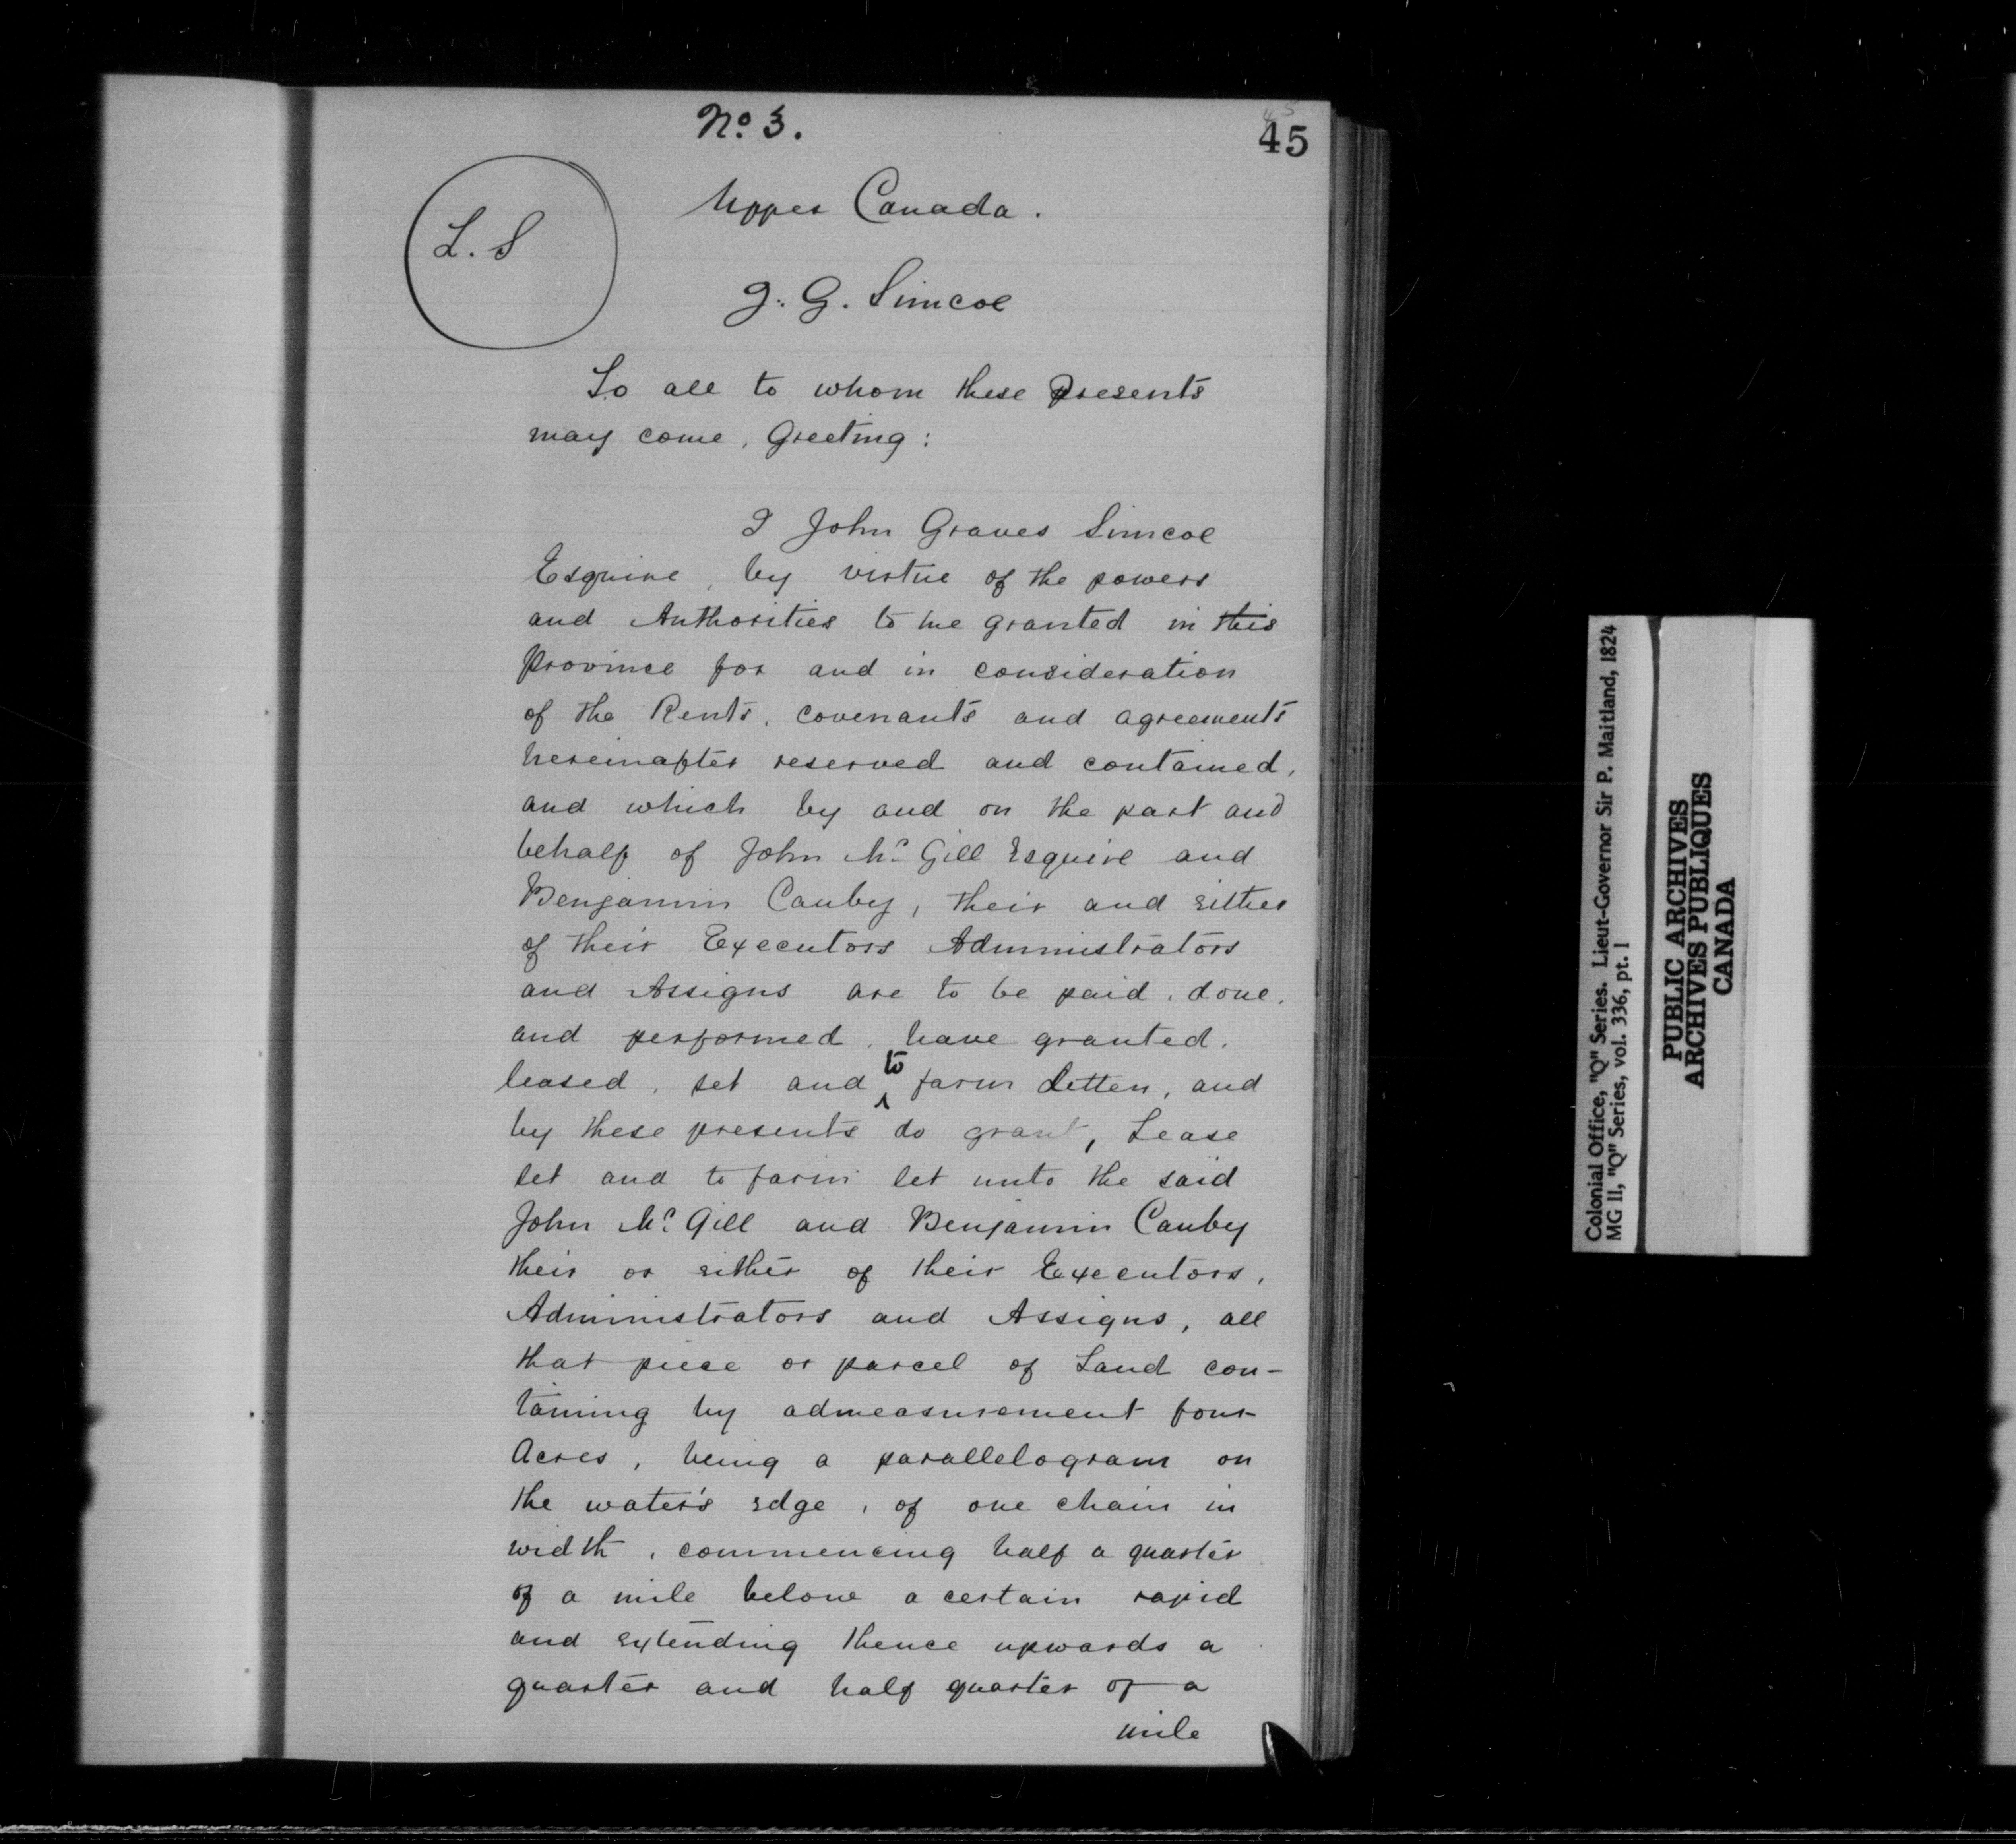 No. 3.
45
L. S
Upper Canada.
J. G. Simcoe
To all to whom these Presents
may come, Greeting:
I John Graves Simcoe
Esquire, by virtue of the powers
and Authorities to me granted in this
Province for and in consideration
of the Rents, covenants and agreements
hereinafter reserved and contained,
and which by and on the part and
behalf of John Mc Gill Esquire and
Benjamin Canby, their and either
of their Executors Administrators
and Assigns are to be paid, done,
and performed, have granted,
leased, set and to farm letten, and
by these presents do grant, Lease
set and to farm let unto the said
John Mc Gill and Benjamin Canby
their or either of their Executors,
Administrators and Assigns, all
that piece or parcel of Land con-
taining by admeasurement four
Acres, being a parallelogram on
the water's edge, of one chain in
width, commencing half a quarter
of a mile below a certain rapid
and extending thence upwards a
quarter and half quarter of a
mile
Colonial Office, "Q" Series. Lieut-Governor Sir P. Maitland, 1824
MG 11, "Q" Series, vol. 336, pt. 1
PUBLIC ARCHIVES
ARCHIVES PUBLIQUES
CANADA